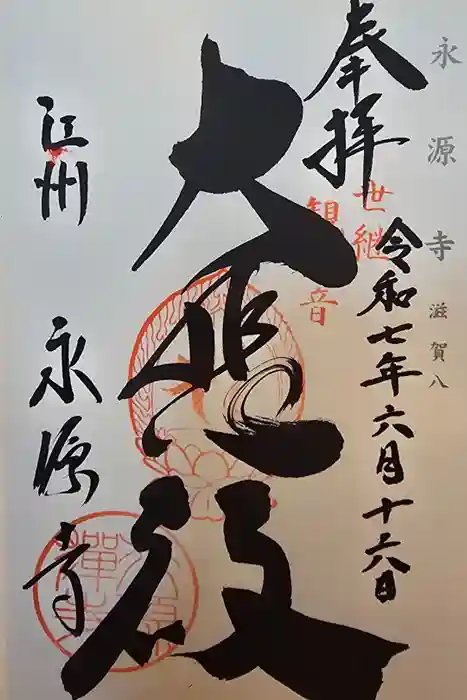 永源寺 滋賀八
奉拝
令和七年六月十六日
世継
観音
大悲殿
江州
永源寺